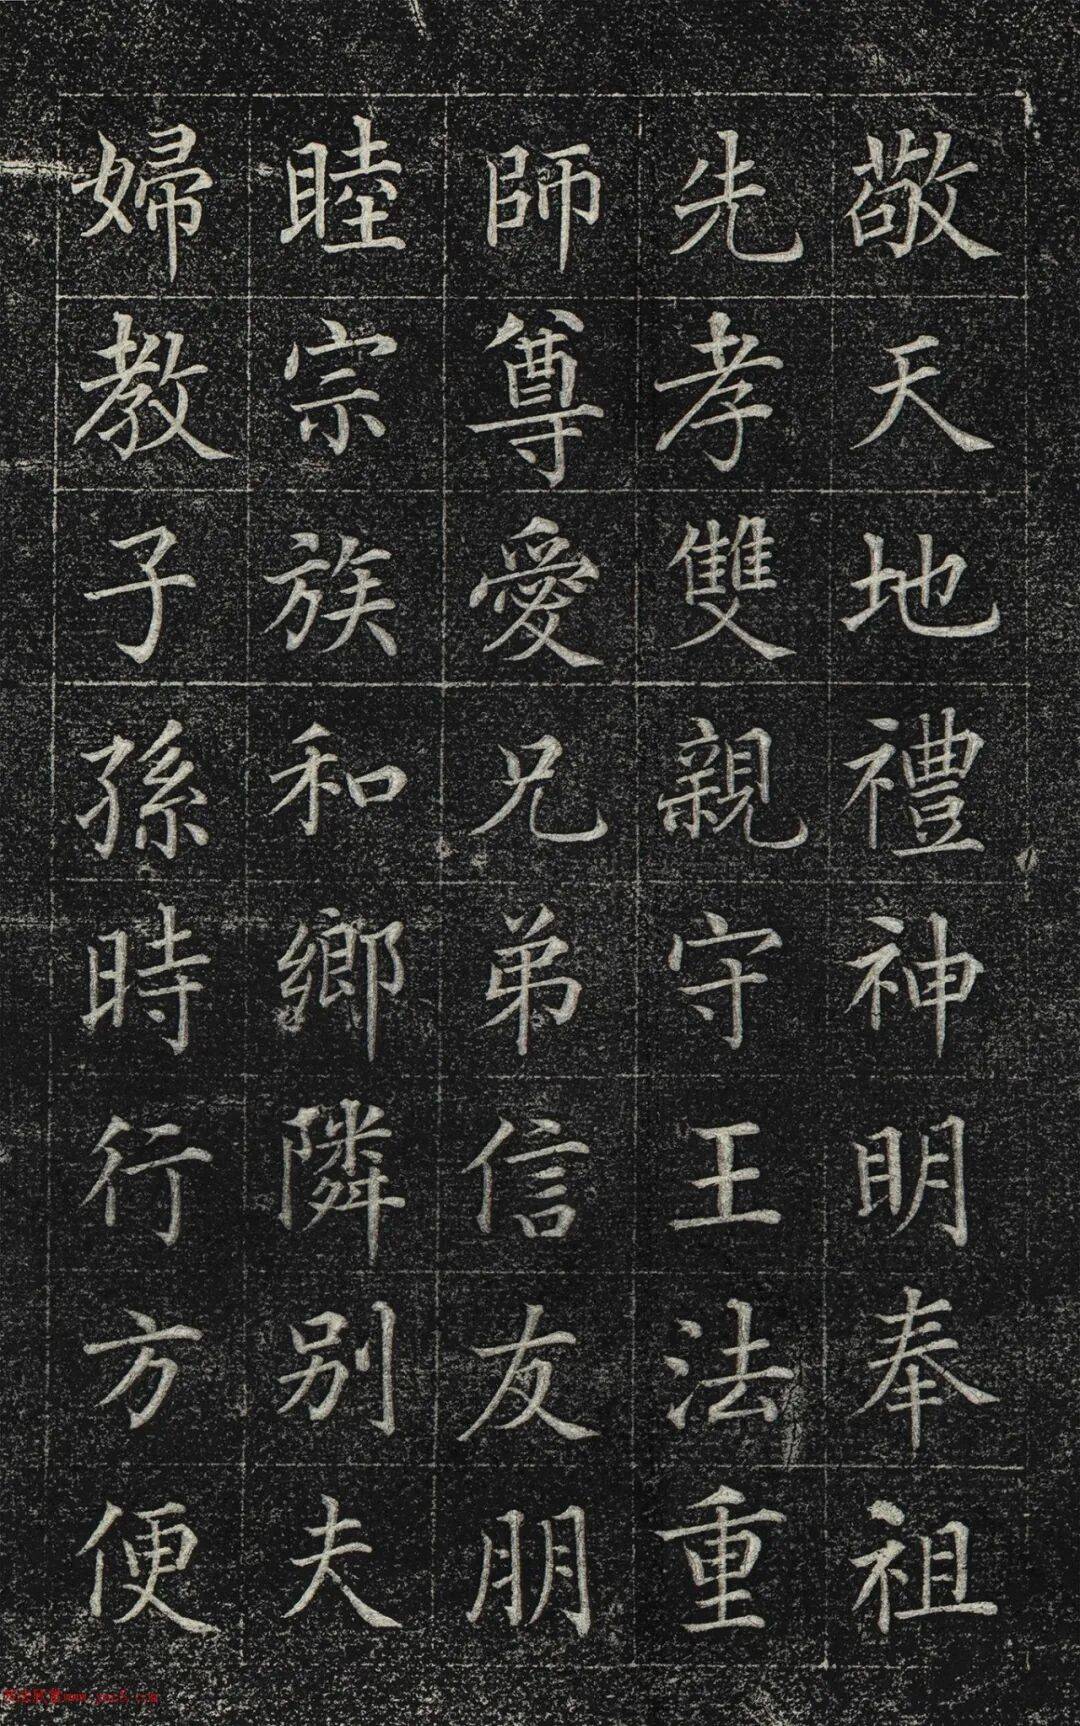 敬天地禮神明奉祖
先孝雙親守王法重
師尊愛兄弟信友朋
睦宗族和鄉隣别夫
婦教子孫時行方便